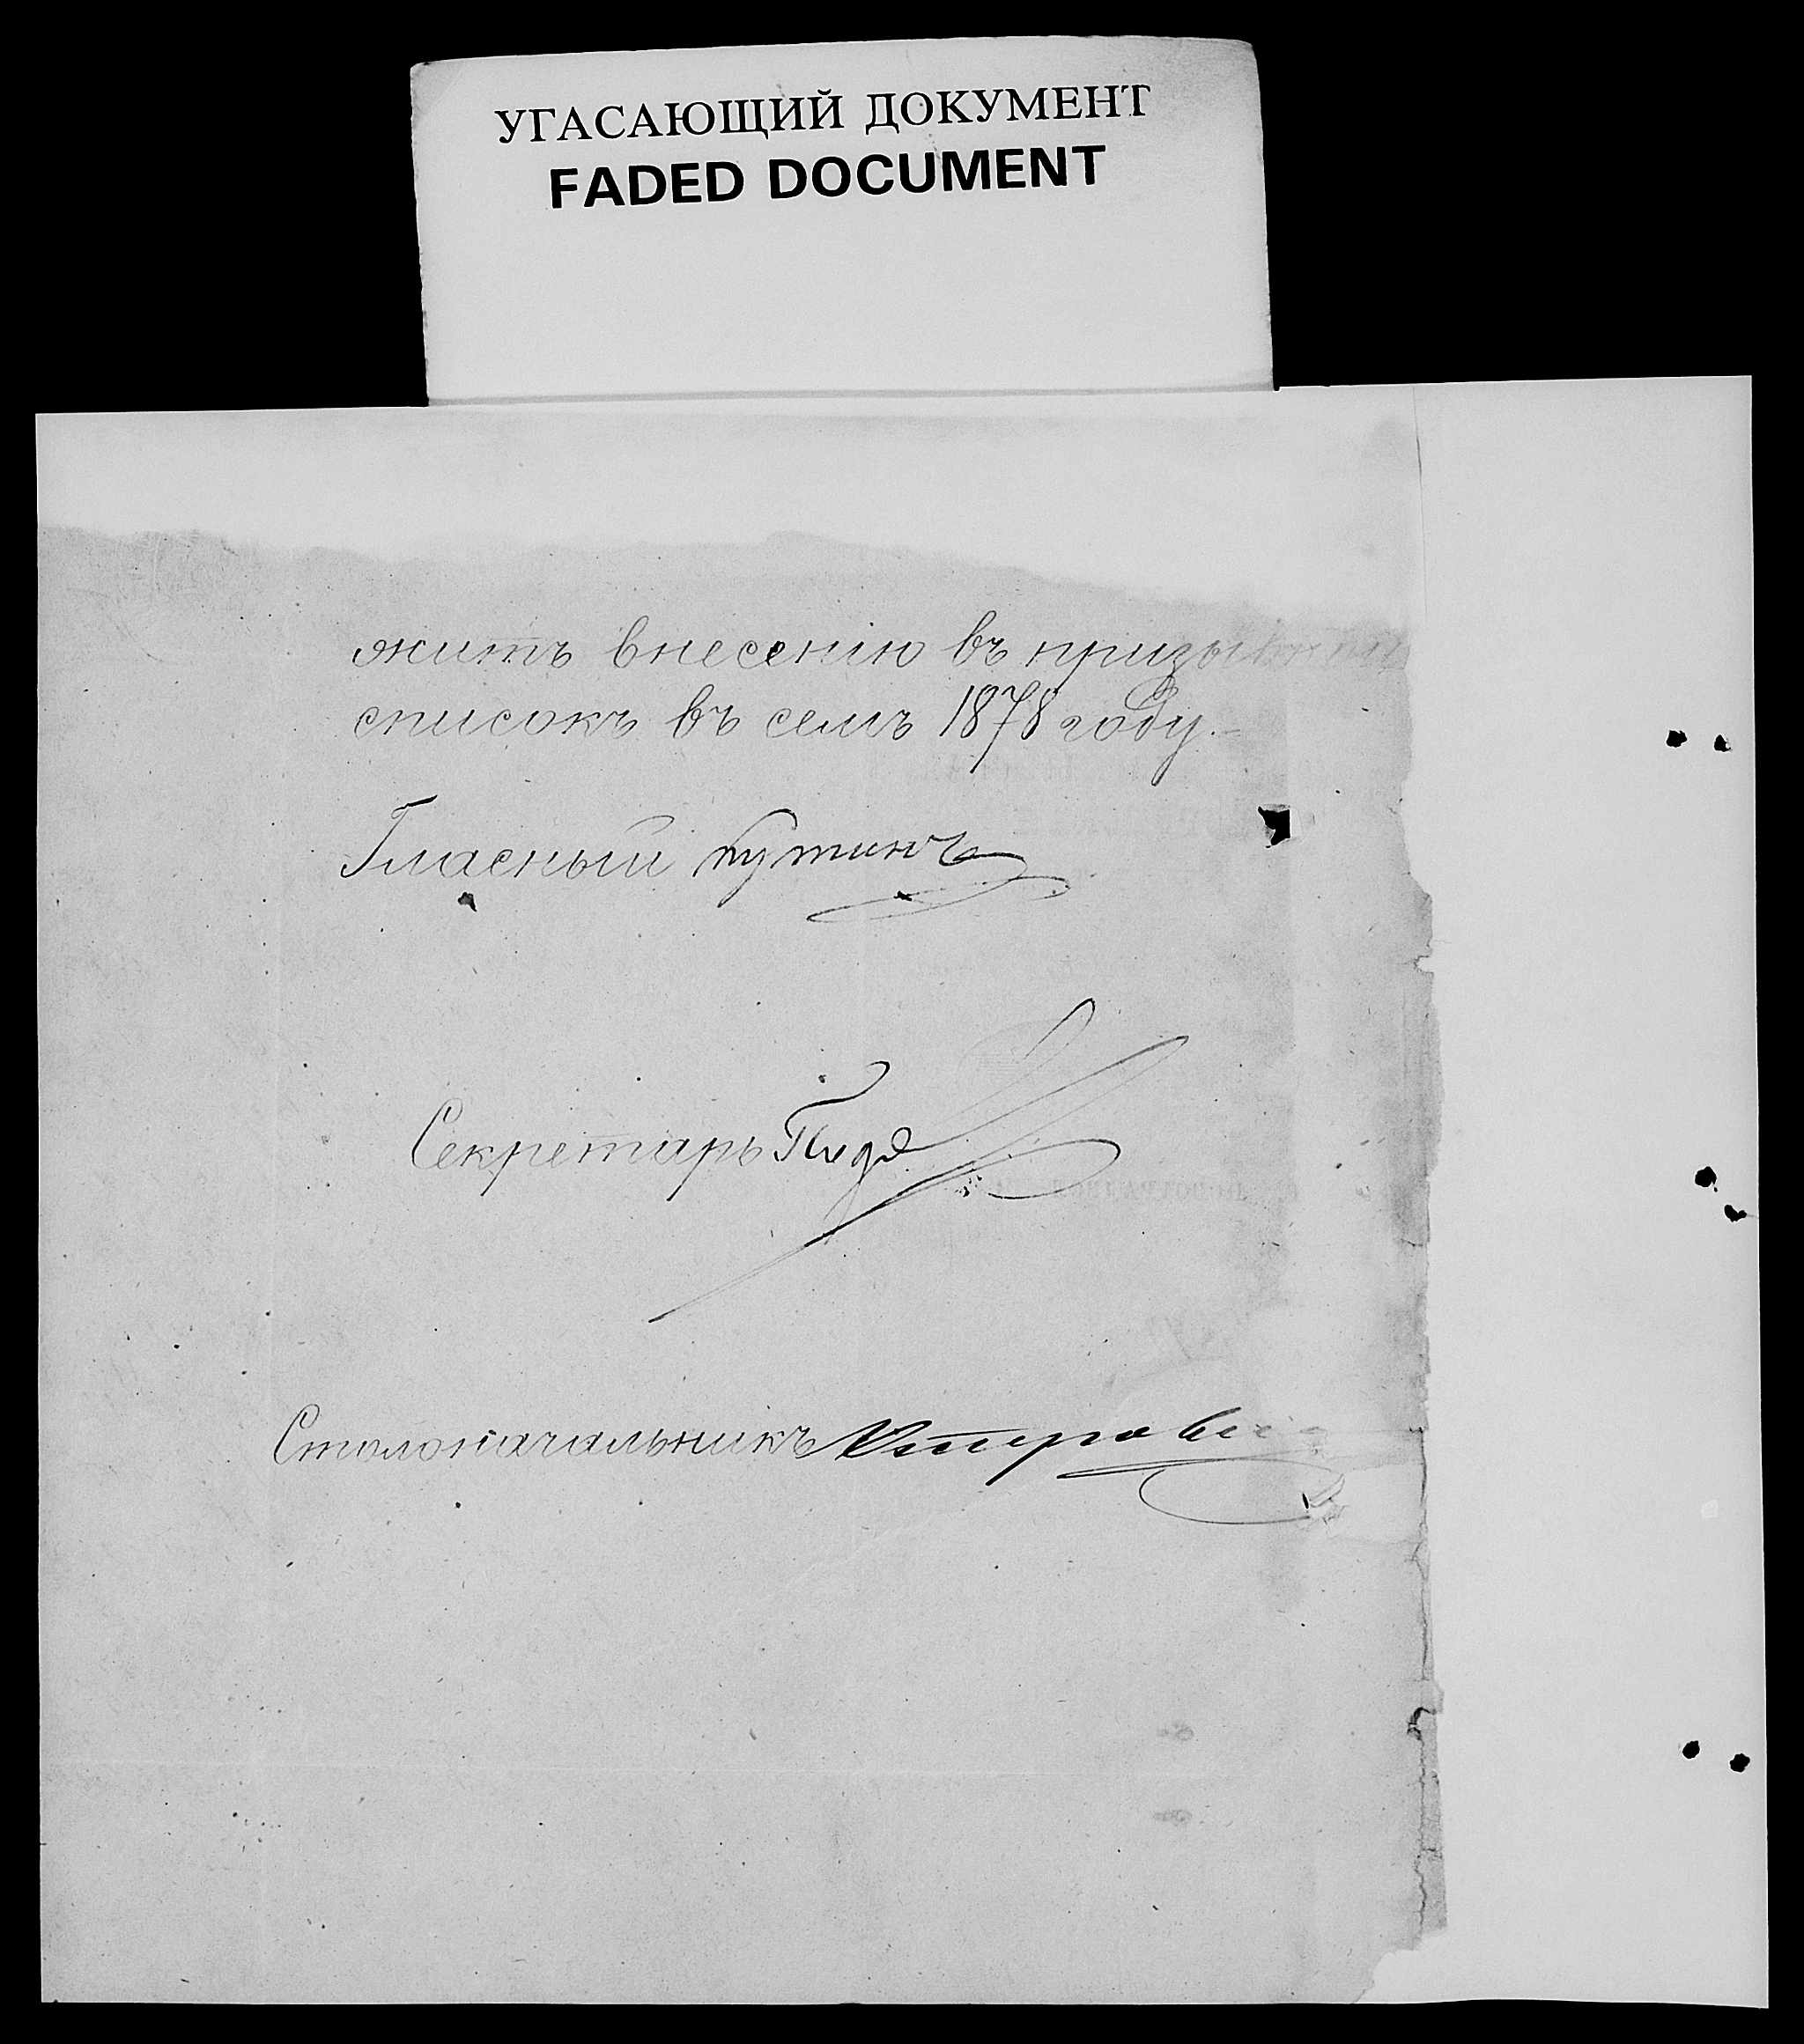 УГАСАЮЩИЙ ДОКУМЕНТ
FADED DOCUMENT
житъ внесенію въ призывной
списокъ въ семъ 1878 году.-
Гласный Кутинъ
Секретарь
Столоначальникъ